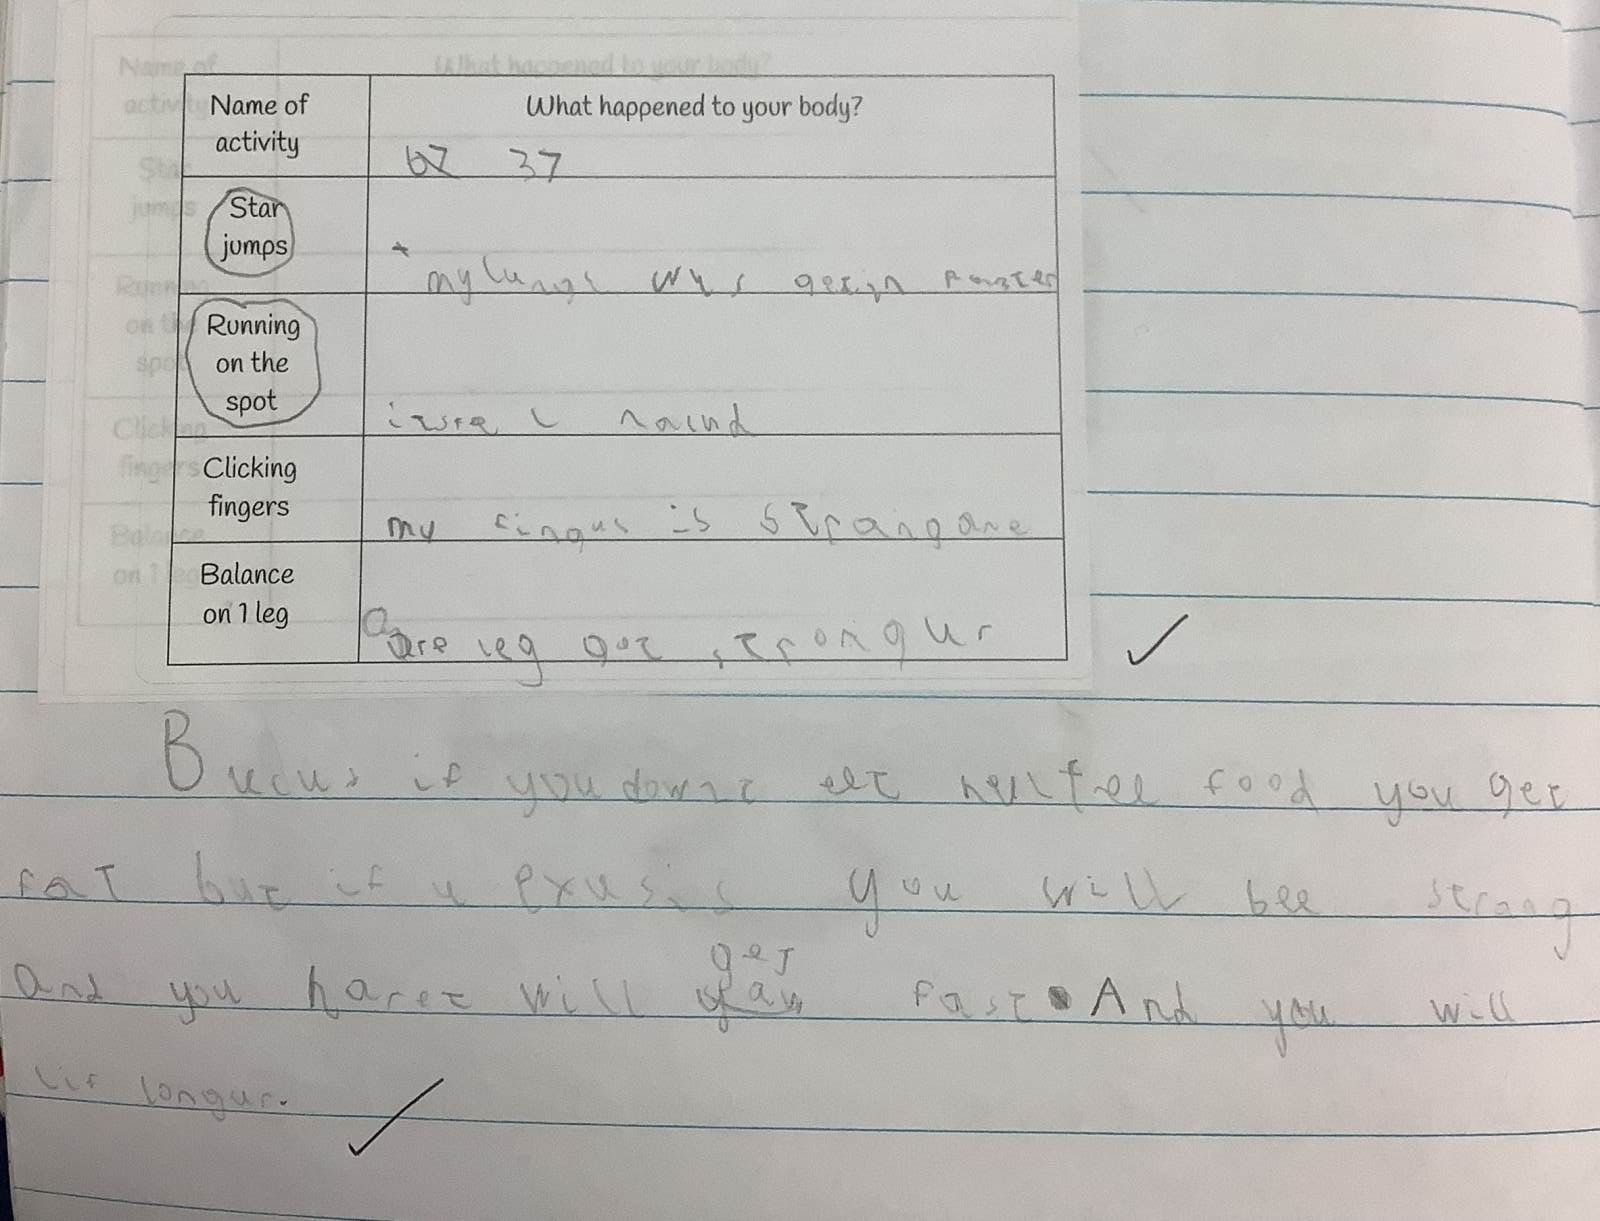 Name of What happened to your body?
activity
67 37
Star
jumps
my lungs wus getign faster
Running
on the
spot
Clicking
fingers
my fingus is strang are
Balance
on 1 leg
are leg got strongur
Bucus if you downt eet helfee food you get
fat but if u exusis you will bee strong
and you haret will get fast. And you will
lif longur.